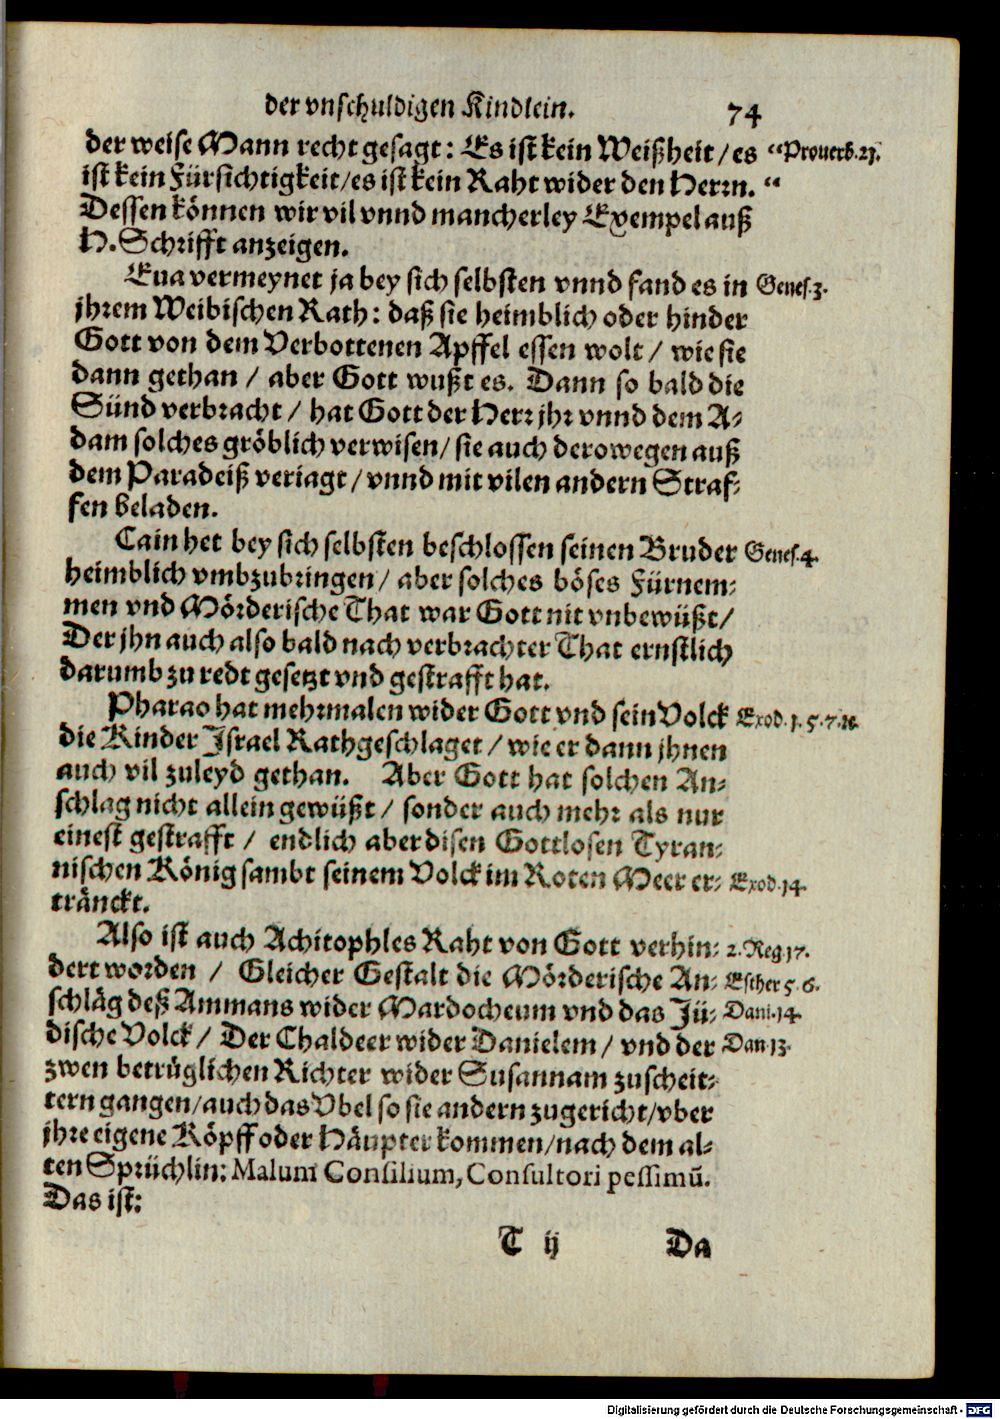 der vnschuldigen Kindlein. 74
der weise Mann recht gesagt: Es ist kein Weißheit/ es “Prouerb. 21.
ist kein Fürsichtigkeit/ es ist kein Raht wider den Herrn. “
Dessen können wir vil vnnd mancherley Exempel auß
H. Schrifft anzeigen.
Eua vermeynet ja bey sich selbsten vnnd fand es in Genes. 3.
jhrem Weibischen Rath: daß sie heimblich oder hinder
Gott von dem Verbottenen Apffel essen wolt / wie sie
dann gethan / aber Gott wußt es. Dann so bald die
Sünd verbracht / hat Gott der Herr jhr vnnd dem A-
dam solches gröblich verwisen/ sie auch derowegen auß
dem Paradeiß veriagt / vnnd mit vilen andern Straf-
fen beladen.
Cain het bey sich selbsten beschlossen seinen Bruder Genes. 4.
heimblich vmbzubringen / aber solches böses Fürnem-
men vnd Mörderische That war Gott nit vnbewüßt/
Der jhn auch also bald nach verbrachter That ernstlich
darumb zu redt gesetzt vnd gestrafft hat.
Pharao hat mehrmalen wider Gott vnd sein Volck Exod. 1. 5. 7.
die Kinder Israel Rathgeschlaget / wie er dann jhnen
auch vil zuleyd gethan. Aber Gott hat solchen An-
schlag nicht allein gewüßt / sonder auch mehr als nur
einest gestrafft / endlich aber disen Gottlosen Tyran-
nischen König sambt seinem Volck im Roten Meer er- Exod. 14.
tränckt.
Also ist auch Achitophles Raht von Gott verhin- 2. Reg 17.
dert worden / Gleicher Gestalt die Mörderische An- Esther 5. 6.
schläg deß Ammans wider Mardocheum vnd das Jü- Dani. 14.
dische Volck / Der Chaldeer wider Danielem / vnd der Dan. 13.
zwen betrüglichen Richter wider Susannam zuscheit-
tern gangen/ auch das Vbel so sie andern zugericht/ vber
jhre eigene Köpff oder Häupter kommen/ nach dem al-
ten Sprüchlin: Malum Consilium, Consultori pessimū.
Das ist:
T ij Da
Digitalisierung gefördert durch die Deutsche Forschungsgemeinschaft - DFG